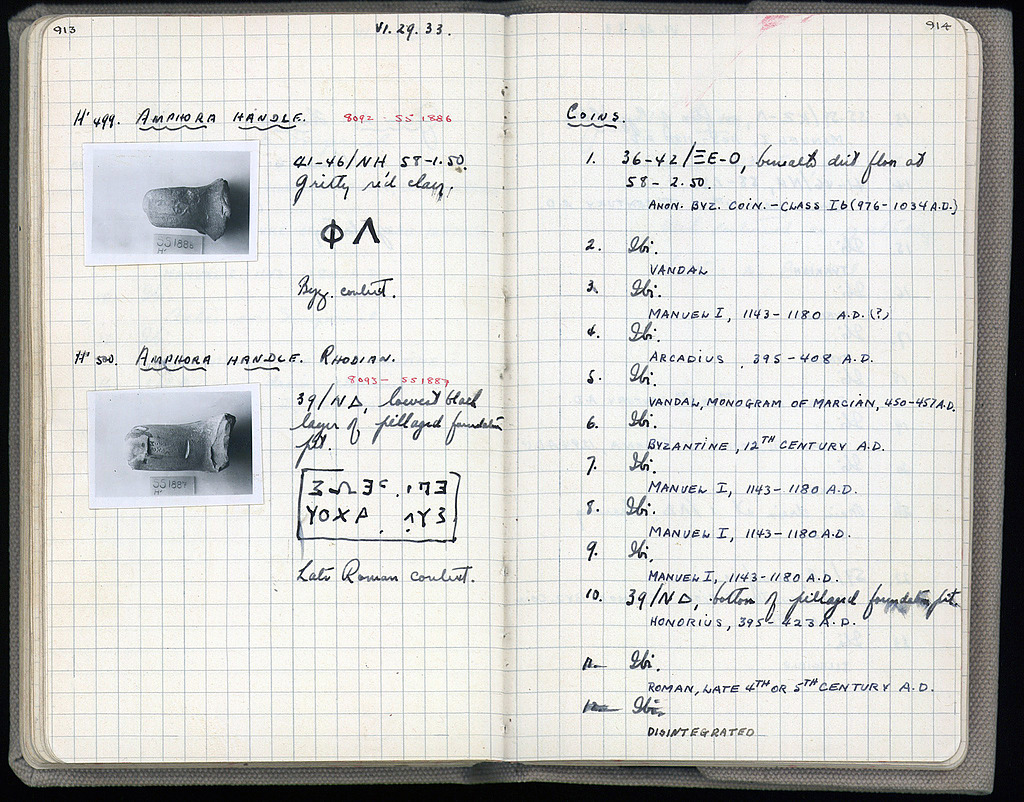 913
VI. 29. 33.
H' 499. AMPHORA HANDLE. 8092 - SS 1886
41-46/ΝΗ 58-1.50.
Gritty red clay.
SS1886
Η'
ΦΛ
Byz. context.
H' 500. AMPHORA HANDLE. RHODIAN.
8093 - SS 1887
39/ΝΔ, lowest black
layer of pillaged foundation
pit.
SS1887
Η'
Late Roman context.
914
COINS.
1. 36-42/ΞΕ-Ο, beneath dirt floor at
58-2.50.
ANON. BYZ. COIN. - CLASS Ib (976-1034 A.D.)
2. Ibi.
VANDAL
3. Ibi.
MANUEL I, 1143-1180 A.D. (?)
4. Ibi.
ARCADIUS, 395-408 A.D.
5. Ibi.
VANDAL, MONOGRAM OF MARCIAN, 450-457 A.D.
6. Ibi.
BYZANTINE, 12TH CENTURY A.D.
7. Ibi.
MANUEL I, 1143-1180 A.D.
8. Ibi.
MANUEL I, 1143-1180 A.D.
9. Ibi.
MANUEL I, 1143-1180 A.D.
10. 39/ΝΔ, bottom of pillaged foundation pit.
HONORIUS, 395-423 A.D.
11. Ibi.
ROMAN, LATE 4TH OR 5TH CENTURY A.D.
12. Ibi.
DISINTEGRATED